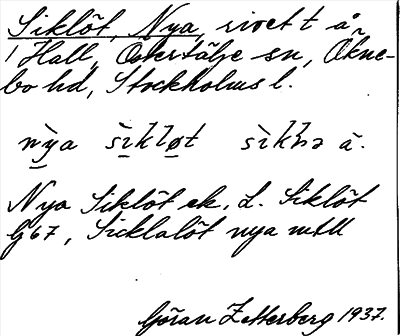 Siklöt, Nya, rivet t å
/ Hall, Östertälje sn, Ökne-
bo hd, Stockholms l.
nỳa sìkløt sìkna à.
Nya Siklöt ek. L. Siklöt
G67, Sicklalöt nya mtll
Göran Zetterberg 1937.